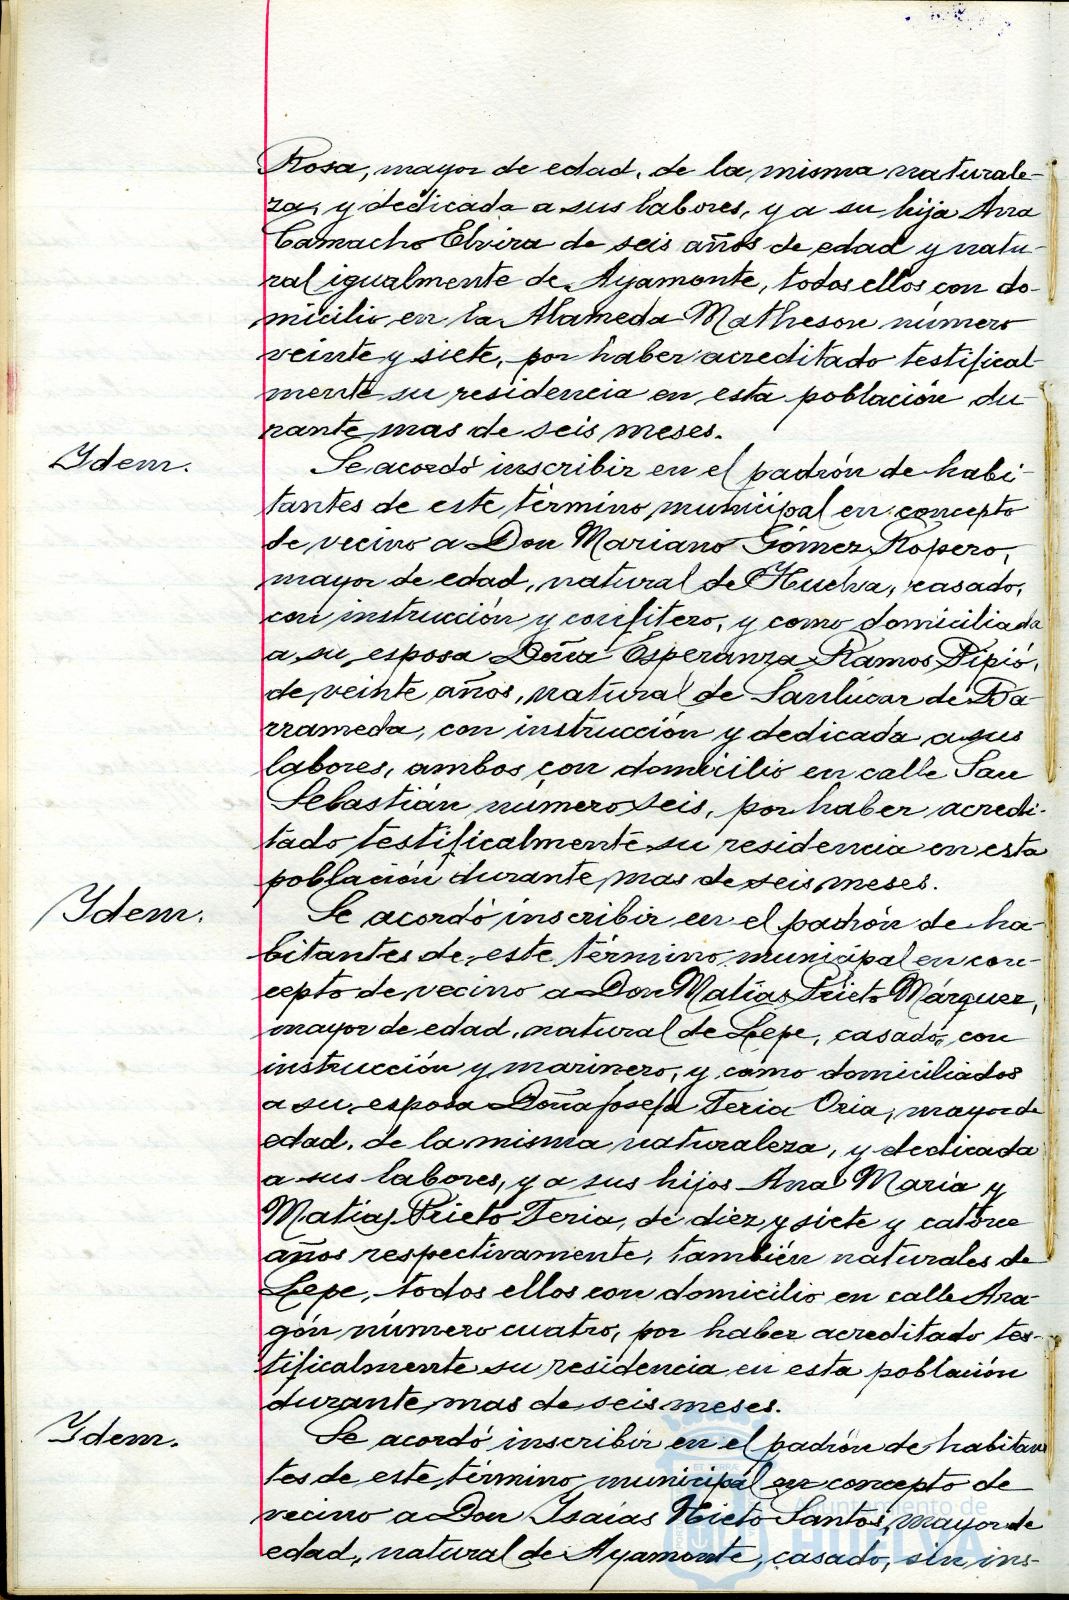 Rosa, mayor de edad, de la misma naturale-
za, y dedicada a sus labores, y a su hija Ana
Camacho Elvira de seis años de edad y natu-
ral igualmente de Ayamonte, todos ellos con do-
micilio en la Alameda Matheson número
veinte y siete, por haber acreditado testifical-
mente su residencia en esta población du-
rante mas de seis meses.
Idem.
Se acordó inscribir en el padrón de habi-
tantes de este término municipal en concepto
de vecino a Don Mariano Gómez Ropero,
mayor de edad, natural de Huelva, casado,
con instrucción y confitero, y como domiciliada
a su esposa Doña Esperanza Ramos Pipió,
de veinte años, natural de Sanlúcar de Ba-
rrameda, con instrucción y dedicada a sus
labores, ambos con domicilio en calle San
Sebastián número seis, por haber acredi-
tado testificalmente su residencia en esta
población durante mas de seis meses.
Idem.
Se acordó inscribir en el padrón de ha-
bitantes de este término municipal en con-
cepto de vecino a Don Matías Prieto Márquez,
mayor de edad, natural de Lepe, casado, con
instrucción y marinero, y como domiciliados
a su esposa Doña Josefa Feria Oria, mayor de
edad, de la misma naturaleza, y dedicada
a sus labores, y a sus hijos Ana Maria y
Matias Prieto Feria, de diez y siete y catorce
años respectivamente, también naturales de
Lepe, todos ellos con domicilio en calle Ara-
gón número cuatro, por haber acreditado tes-
tificalmente su residencia en esta población
durante mas de seis meses.
Idem.
Se acordó inscribir en el padrón de habitan
tes de este término municipal en concepto de
vecino a Don Isaías Nieto Santos, mayor de
edad, natural de Ayamonte, casado, sin ins-
Ayuntamiento de
HUELVA